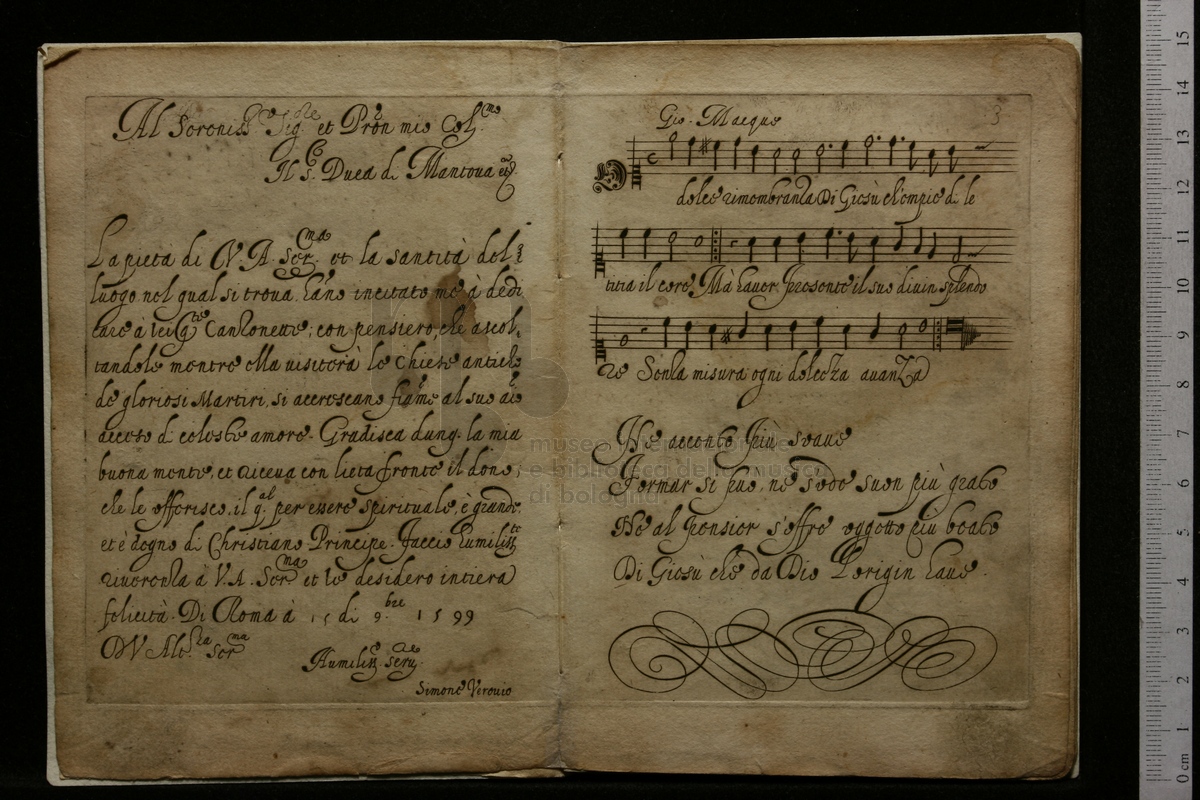 Al Sereniss. Sig.re et Pron mio Col.mo
Il S. Duca di Mantoua etc.
La pieta di V. A. Ser.ma et la santità del
luogo nel qual si troua, hano incitato me à dedi
care à lei q.te Canzonette; con pensiero, che ascol,
tandole mentre ella uisiterà le chiese antiche
de gloriosi Martiri, si accrescano fiame al suo
acceso di celeste amore. Gradisca dunq. la mia
buona mente, et riceua con lieta fronte il dono;
che le offerisco, il q.al per essere spirituale, è grande
et è degno di Christiano Principe. Faccio humiliss.
riuerenza à V. A. Ser.ma et le desidero intiera
felicità. Di Roma à 15 di 9.bre 1599
D V. Alt.za Ser.ma
Humiliss. seru.
Simone Verouio
3
Gio. Macque
dolce rimembranza Di Giesù ch'empie di le
titia il core, Mà hauer presente il suo diuin splendo
re Senza misura ogni dolcezza auanza
Ne accento più soaue
Formar si puo, ne s'ode suon più grato
Ne al pensier s'offre oggetto più beato
Di Giesù che da Dio l'origin haue.
museo internazionale
e biblioteca della musica
di bologna
0 cm 1 2 3 4 5 6 7 8 9 10 11 12 13 14 15